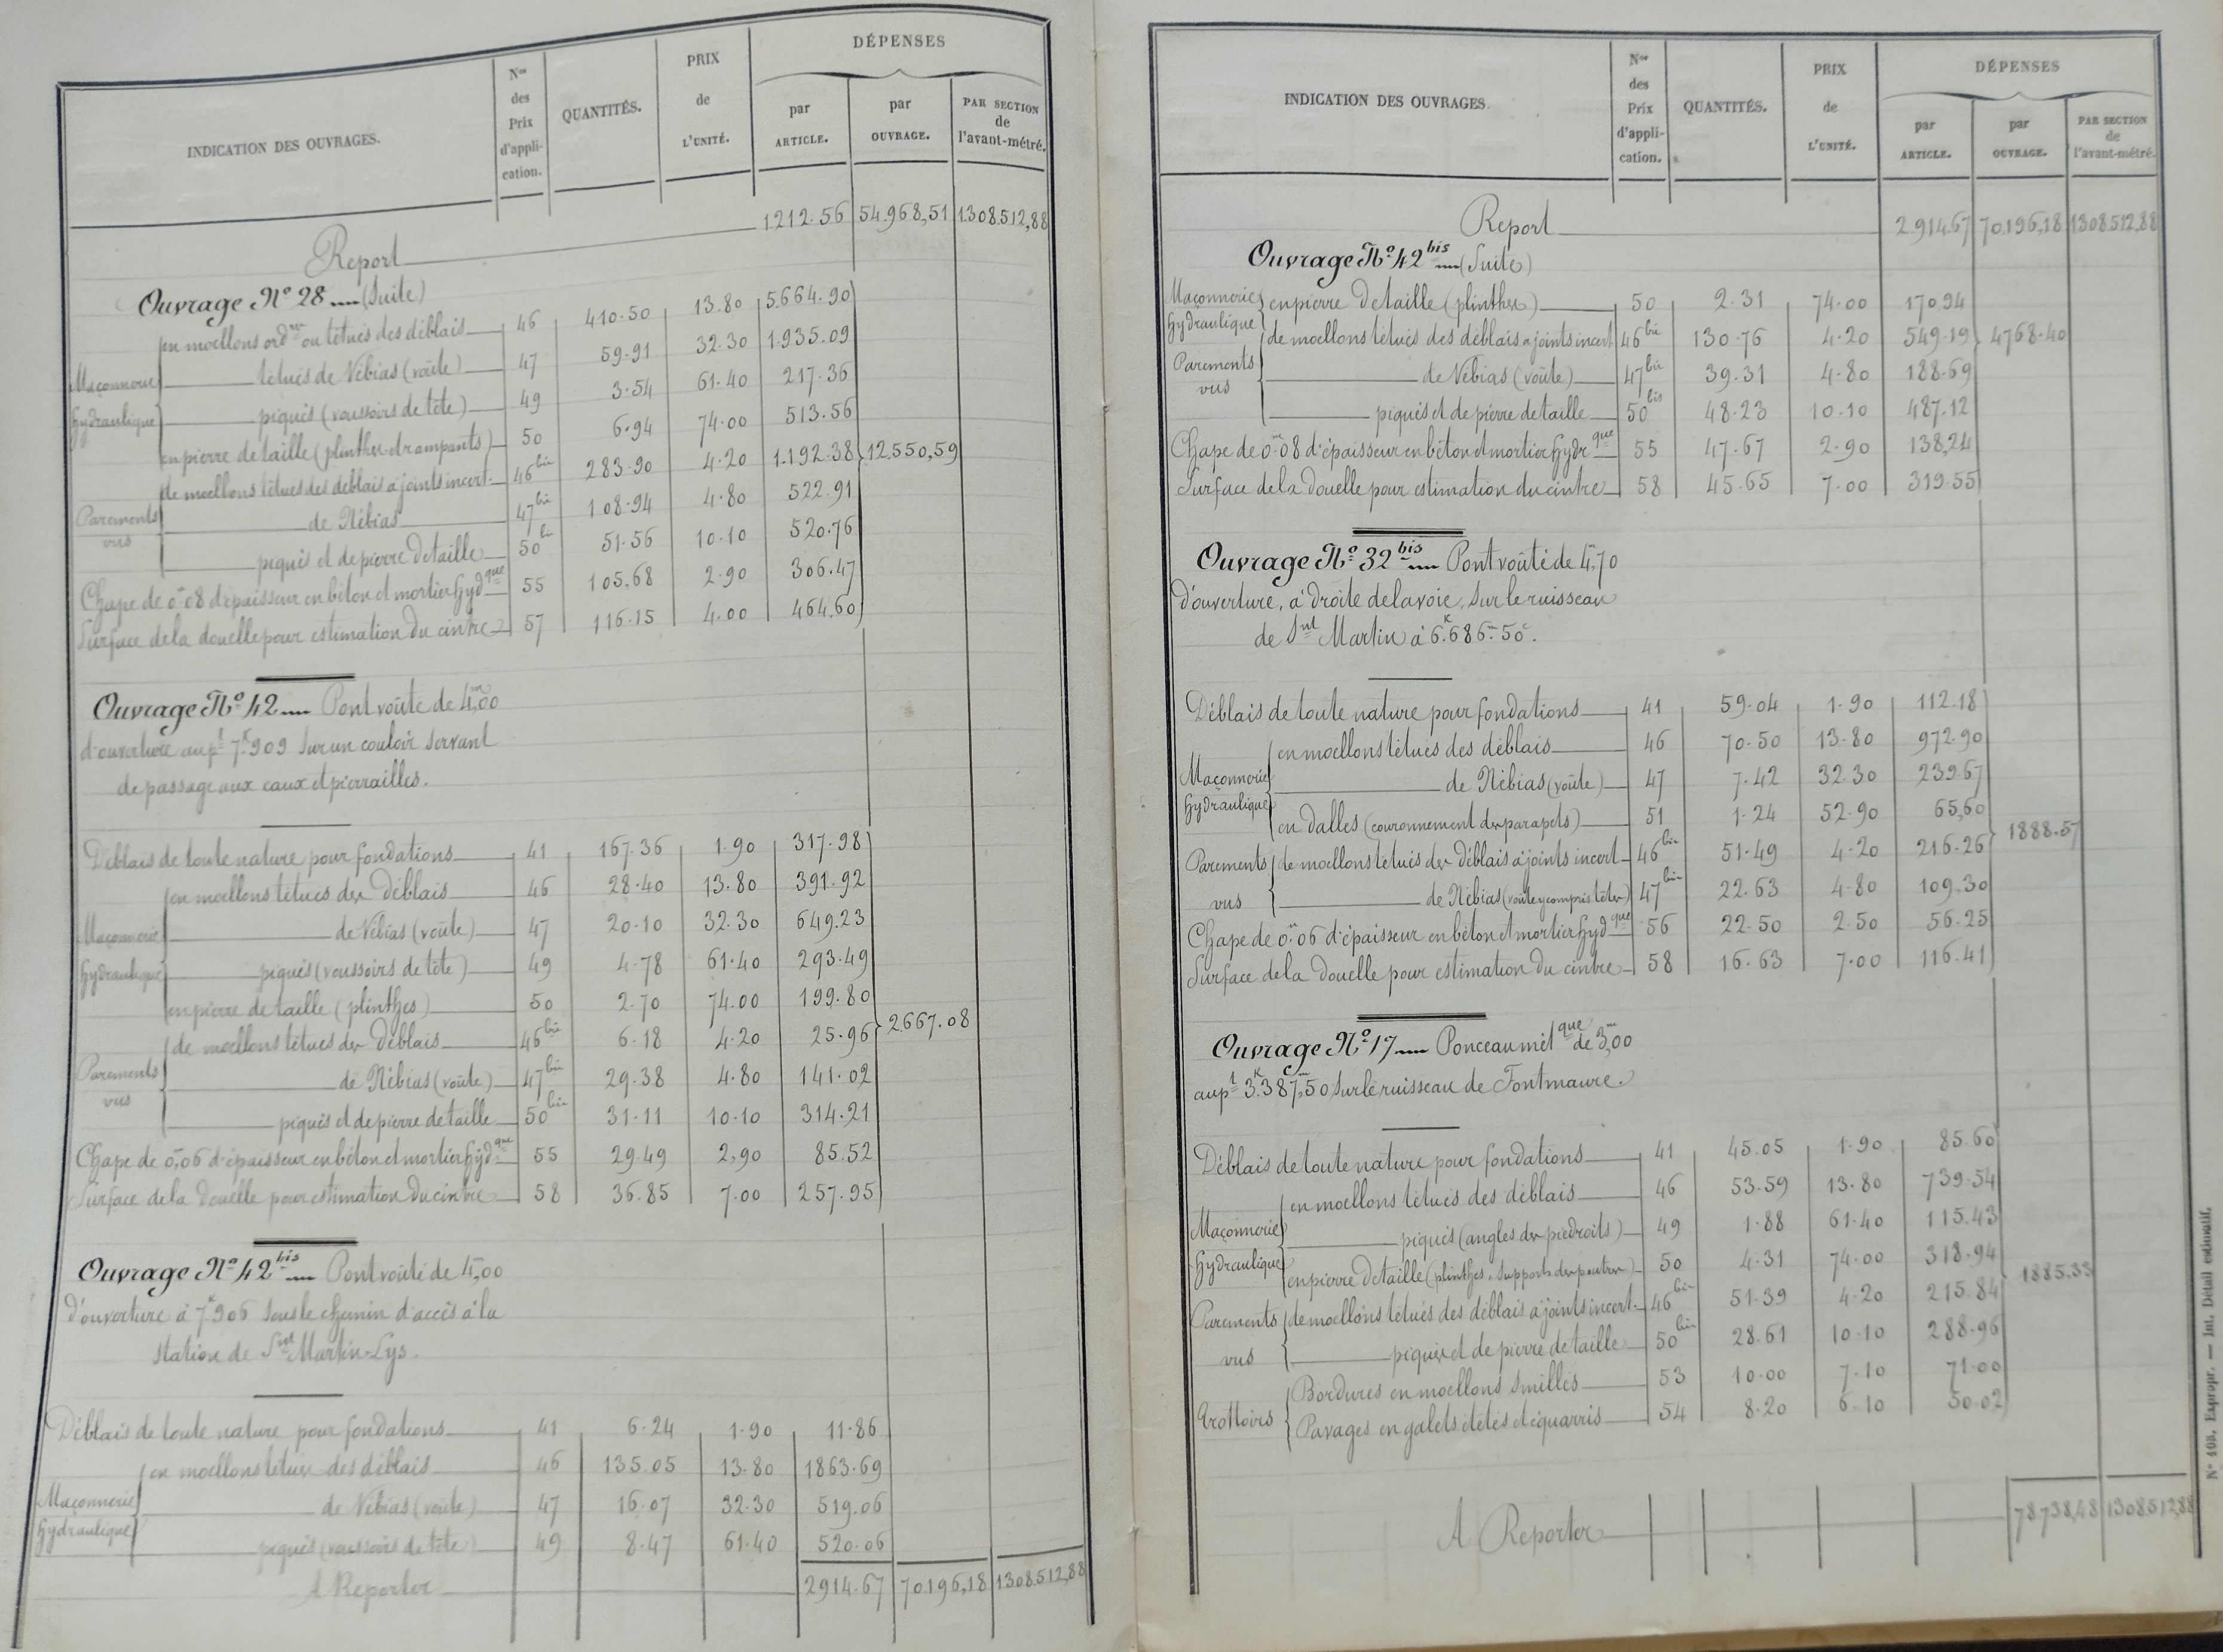 INDICATION DES OUVRAGES. Nos des Prix d'application. QUANTITÉS. PRIX de L'UNITÉ. DÉPENSES par ARTICLE. par OUVRAGE. PAR SECTION de l'avant-métré.
Report 1212.56 54.968,51 1308.512,88
Ouvrage No 28 (Suite)
Maçonnerie hydraulique
en moellons ordres ou têtués des déblais 46 410.50 13.80 5.664.90
têtués de Nébias (voûte) 47 59.91 32.30 1.935.09
piqués (voussoirs de tête) 49 3.54 61.40 217.36
en pierre de taille (plinthes et rampants) 50 6.94 74.00 513.56
Parements vus
de moellons têtués des déblais à joints incert. 46 bis 283.90 4.20 1.192.38 12.550,59
de Nébias 47 bis 108.94 4.80 522.91
piqués et de pierre de taille 50 bis 51.56 10.10 520.76
Chape de 0m08 d'épaisseur en béton et mortier hydque 55 105.68 2.90 306.47
Surface de la douelle pour estimation du cintre 57 116.15 4.00 464.60
Ouvrage No 42 Pont voûté de 4m,00
d'ouverture au pt 7k909 sur un couloir servant
de passage aux eaux et pierrailles.
Déblais de toute nature pour fondations 41 167.36 1.90 317.98
Maçonnerie hydraulique
en moellons têtués des déblais 46 28.40 13.80 391.92
de Nébias (voûte) 47 20.10 32.30 649.23
piqués (voussoirs de tête) 49 4.78 61.40 293.49
en pierre de taille (plinthes) 50 2.70 74.00 199.80
Parements vus
de moellons têtués des déblais 46 bis 6.18 4.20 25.96 2.667.08
de Nébias (voûte) 47 bis 29.38 4.80 141.02
piqués et de pierre de taille 50 bis 31.11 10.10 314.21
Chape de 0m,06 d'épaisseur en béton et mortier hydque 55 29.49 2,90 85.52
Surface de la douelle pour estimation du cintre 58 36.85 7.00 257.95
Ouvrage No 42 bis Pont voûté de 4m,00
d'ouverture à 7k906 sous le chemin d'accès à la
station de Snt Martin-Lys.
Déblais de toute nature pour fondations 41 6.24 1.90 11.86
Maçonnerie hydraulique
en moellons têtués des déblais 46 135.05 13.80 1863.69
de Nébias (voûte) 47 16.07 32.30 519.06
piqués (voussoirs de tête) 49 8.47 61.40 520.06
A Reporter 2914.67 70.196,18 1308.512,88
INDICATION DES OUVRAGES. Nos des Prix d'application. QUANTITÉS. PRIX de L'UNITÉ. DÉPENSES par ARTICLE. par OUVRAGE. PAR SECTION de l'avant-métré.
Report 2.914.67 70.196,18 1308.512,88
Ouvrage No 42 bis (Suite)
Maçonnerie hydraulique
en pierre de taille (plinthes) 50 2.31 74.00 170.94
Parements vus
de moellons têtués des déblais à joints incert 46 bis 130.76 4.20 549.19 4768.40
de Nébias (voûte) 47 bis 39.31 4.80 188.69
piqués et de pierre de taille 50 bis 48.23 10.10 487.12
Chape de 0m08 d'épaisseur en béton et mortier hydrque 55 47.67 2.90 138,24
Surface de la douelle pour estimation du cintre 58 45.65 7.00 319.55
Ouvrage No 32 bis Pont voûté de 4m,70
d'ouverture, à droite de la voie, sur le ruisseau
de Snt Martin à 6k.686m.50c.
Déblais de toute nature pour fondations 41 59.04 1.90 112.18
Maçonnerie hydraulique
en moellons têtués des déblais 46 70.50 13.80 972.90
de Nébias (voûte) 47 7.42 32.30 239.67
en dalles (couronnement des parapets) 51 1.24 52.90 65,60
Parements vus
de moellons têtués des déblais à joints incert 46 bis 51.49 4.20 216.26 1888.57
de Nébias (voûte y compris têtes) 47 bis 22.63 4.80 109.30
Chape de 0m06 d'épaisseur en béton et mortier hydque 56 22.50 2.50 56.25
Surface de la douelle pour estimation du cintre 58 16.63 7.00 116.41
Ouvrage No 17 Ponceau métque de 3m,00
au pt 3k.387m,50c sur le ruisseau de Fontmaure.
Déblais de toute nature pour fondations 41 45.05 1.90 85.60
Maçonnerie hydraulique
en moellons têtués des déblais 46 53.59 13.80 739.54
piqués (angles des piédroits) 49 1.88 61.40 115.43
en pierre de taille (plinthes, supports des poutres) 50 4.31 74.00 318.94 1885.33
Parements vus
de moellons têtués des déblais à joints incert. 46 bis 51.39 4.20 215.84
piqués et de pierre de taille 50 bis 28.61 10.10 288.96
Trottoirs
Bordures en moellons smillés 53 10.00 7.10 71.00
Pavages en galets étêtés et équarris 54 8.20 6.10 50.02
A Reporter 78.738,48 1308.512,88
No 408. Expropr. — Int. Détail estimatif.